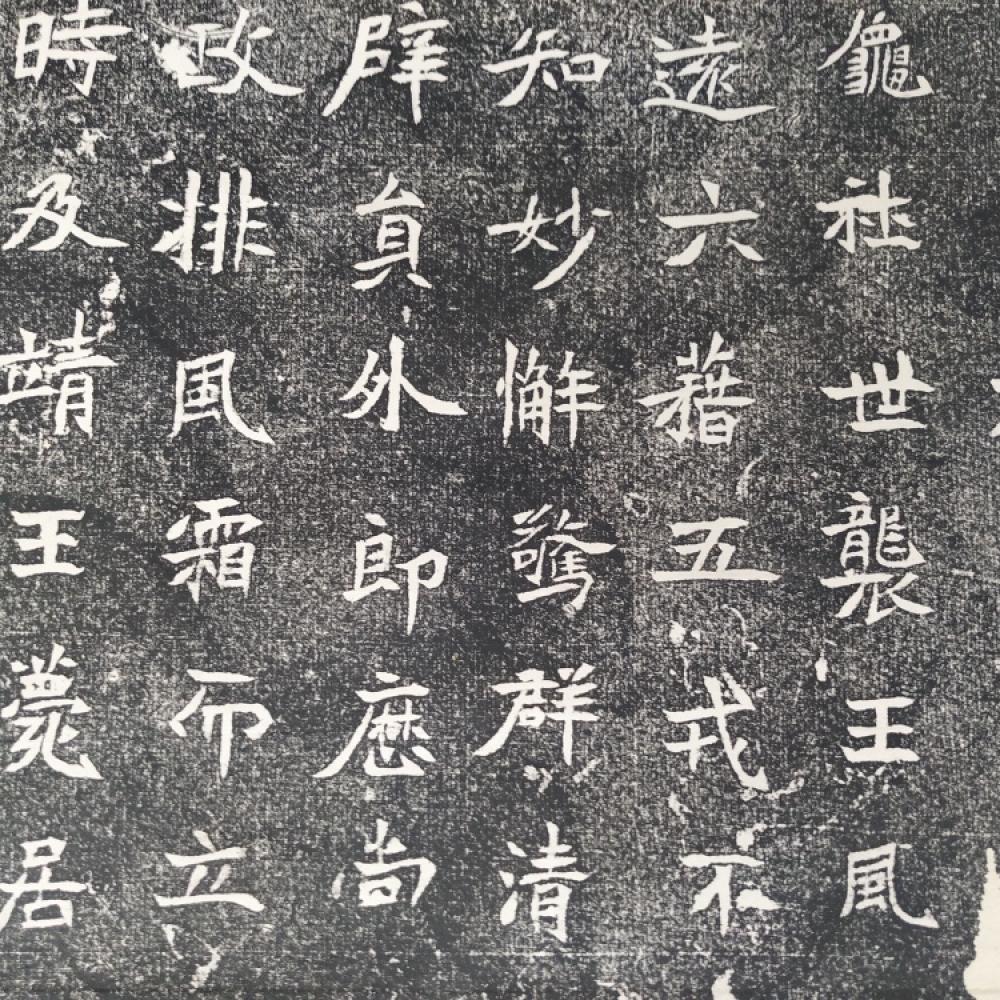 龕社世襲王風
遠六藉五戎不
知妙懈驚群清
辟貟外郎應尚
政排風霜而立
時及靖王薨居